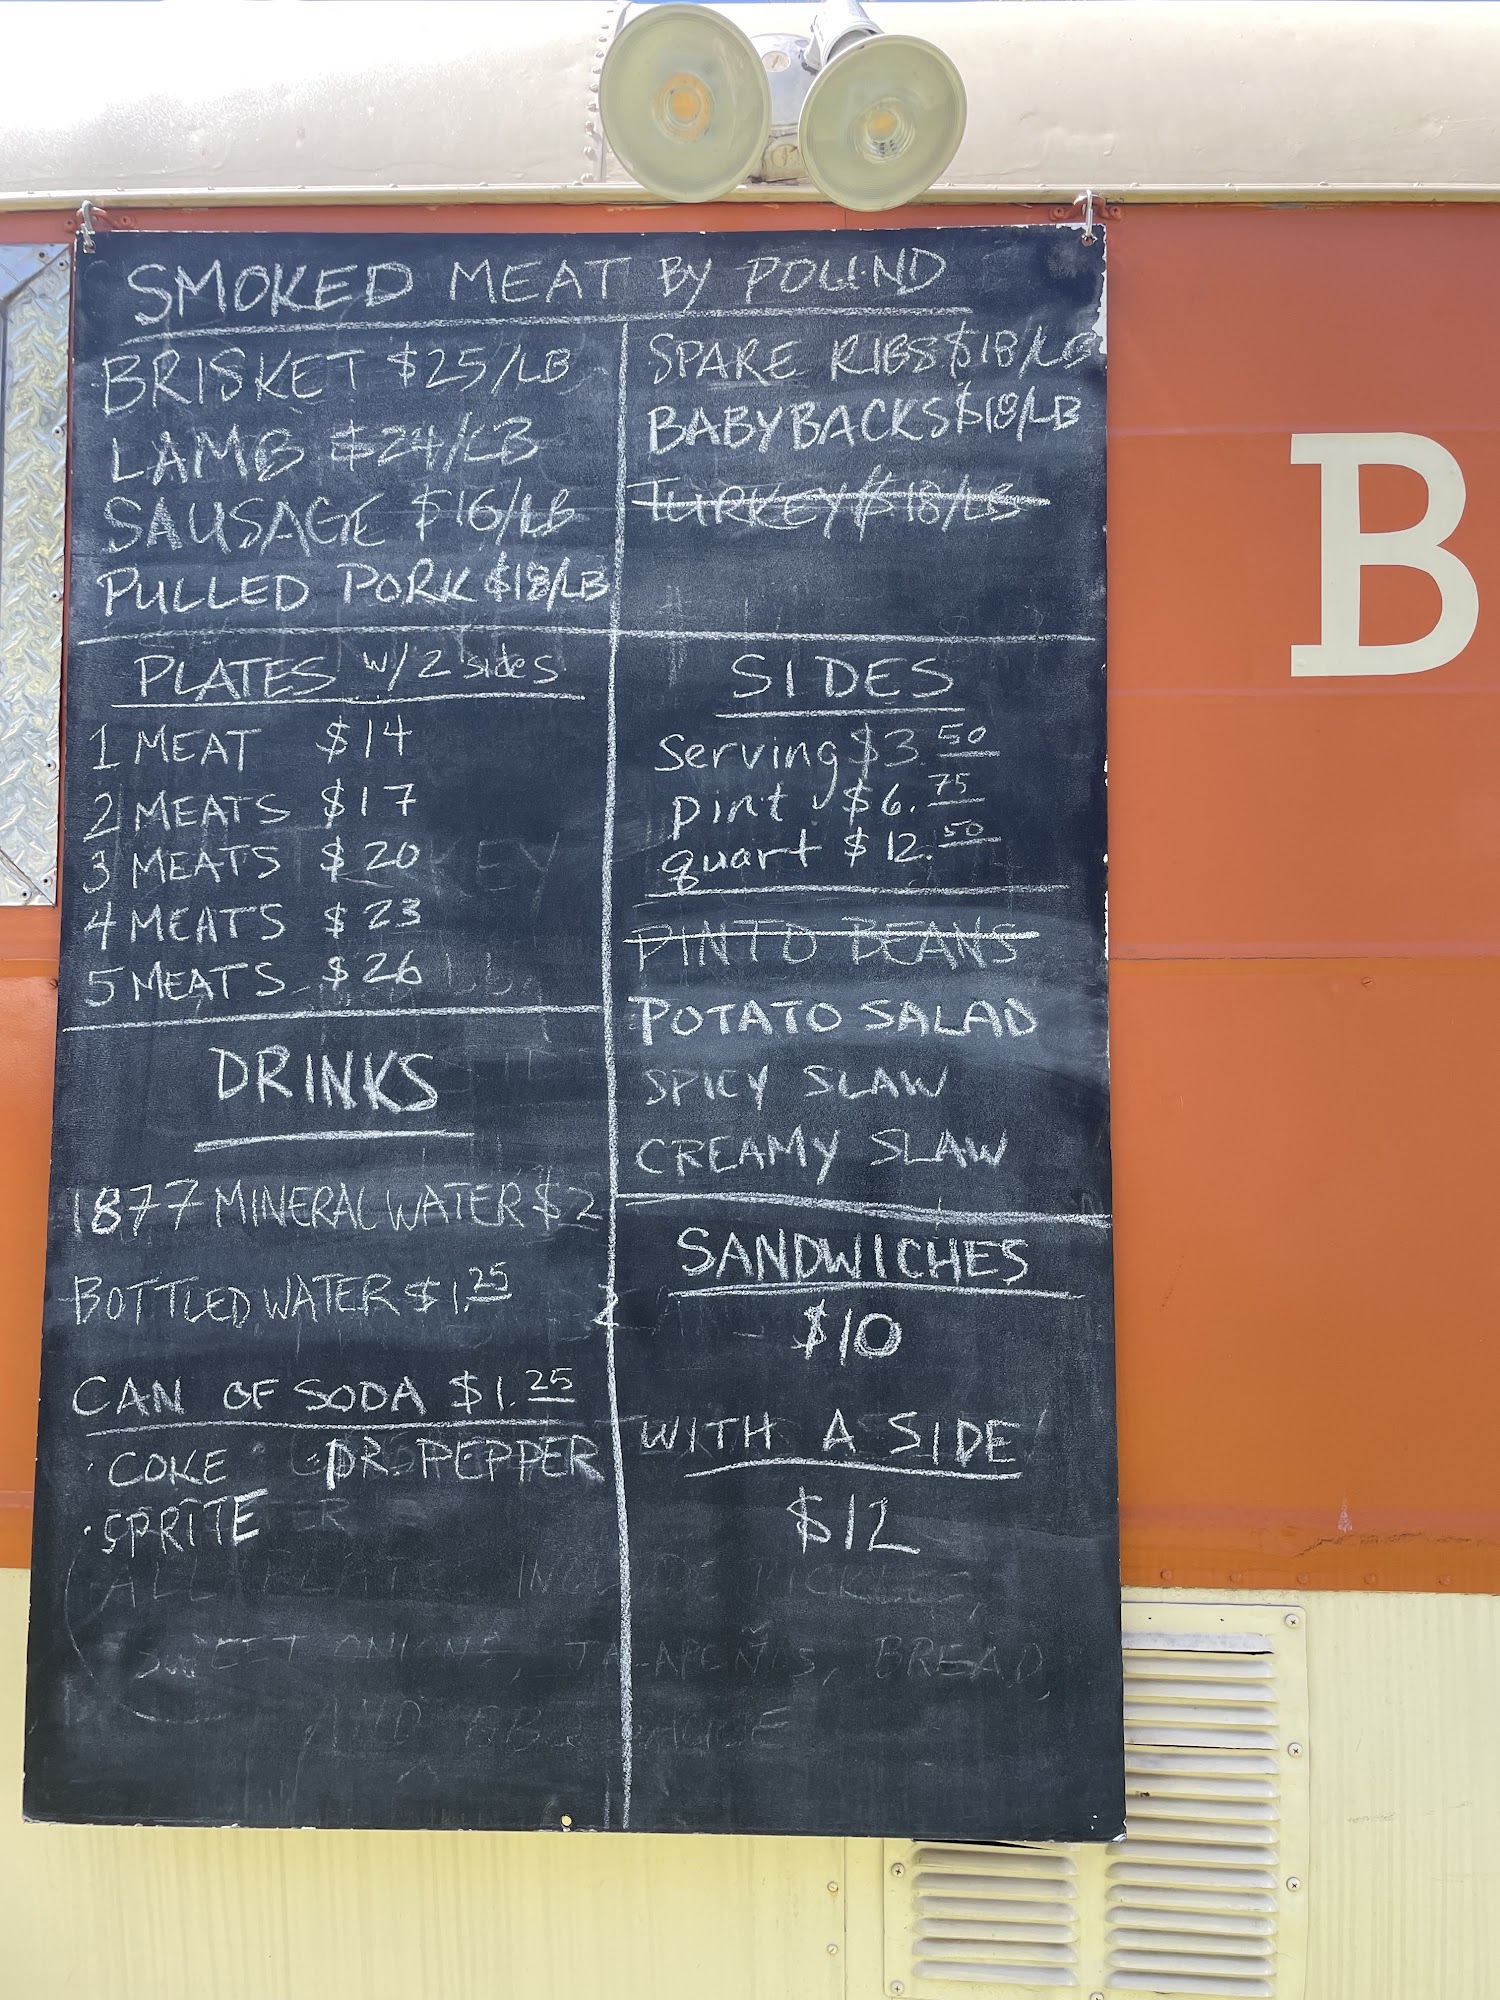 SMOKED MEAT BY POUND
BRISKET $25/LB
LAMB $24/LB
SAUSAGE $16/LB
PULLED PORK $18/LB
SPARE RIBS $18/LB
BABYBACKS $18/LB
TURKEY $18/LB
PLATES w/2 sides
1 MEAT $14
2 MEATS $17
3 MEATS $20
4 MEATS $23
5 MEATS $26
SIDES
Serving $3.50
pint $6.75
quart $12.50
PINTO BEANS
POTATO SALAD
SPICY SLAW
CREAMY SLAW
DRINKS
1877 MINERAL WATER $2
BOTTLED WATER $1.25
CAN OF SODA $1.25
· COKE DR. PEPPER
· SPRITE
SANDWICHES
$10
WITH A SIDE
$12
ALL PLATES INCLUDE PICKLES,
SWEET ONIONS, JALAPEÑOS, BREAD
AND BBQ SAUCE
B